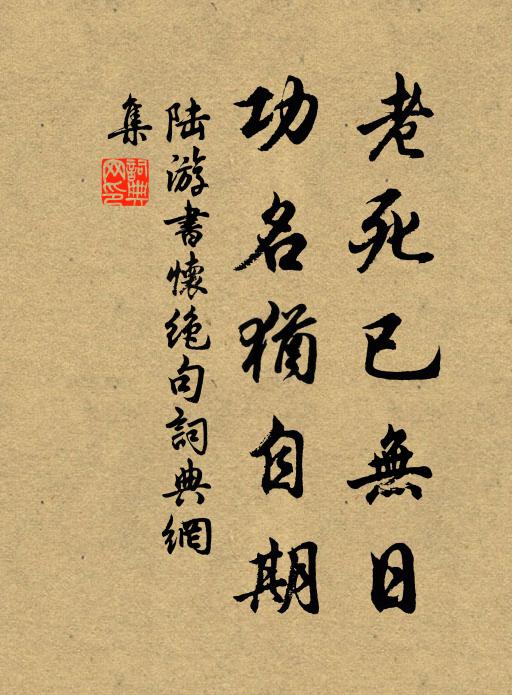 老死已無日
功名猶自期
陆游書懷绝句詞典網
集
詞典
网印